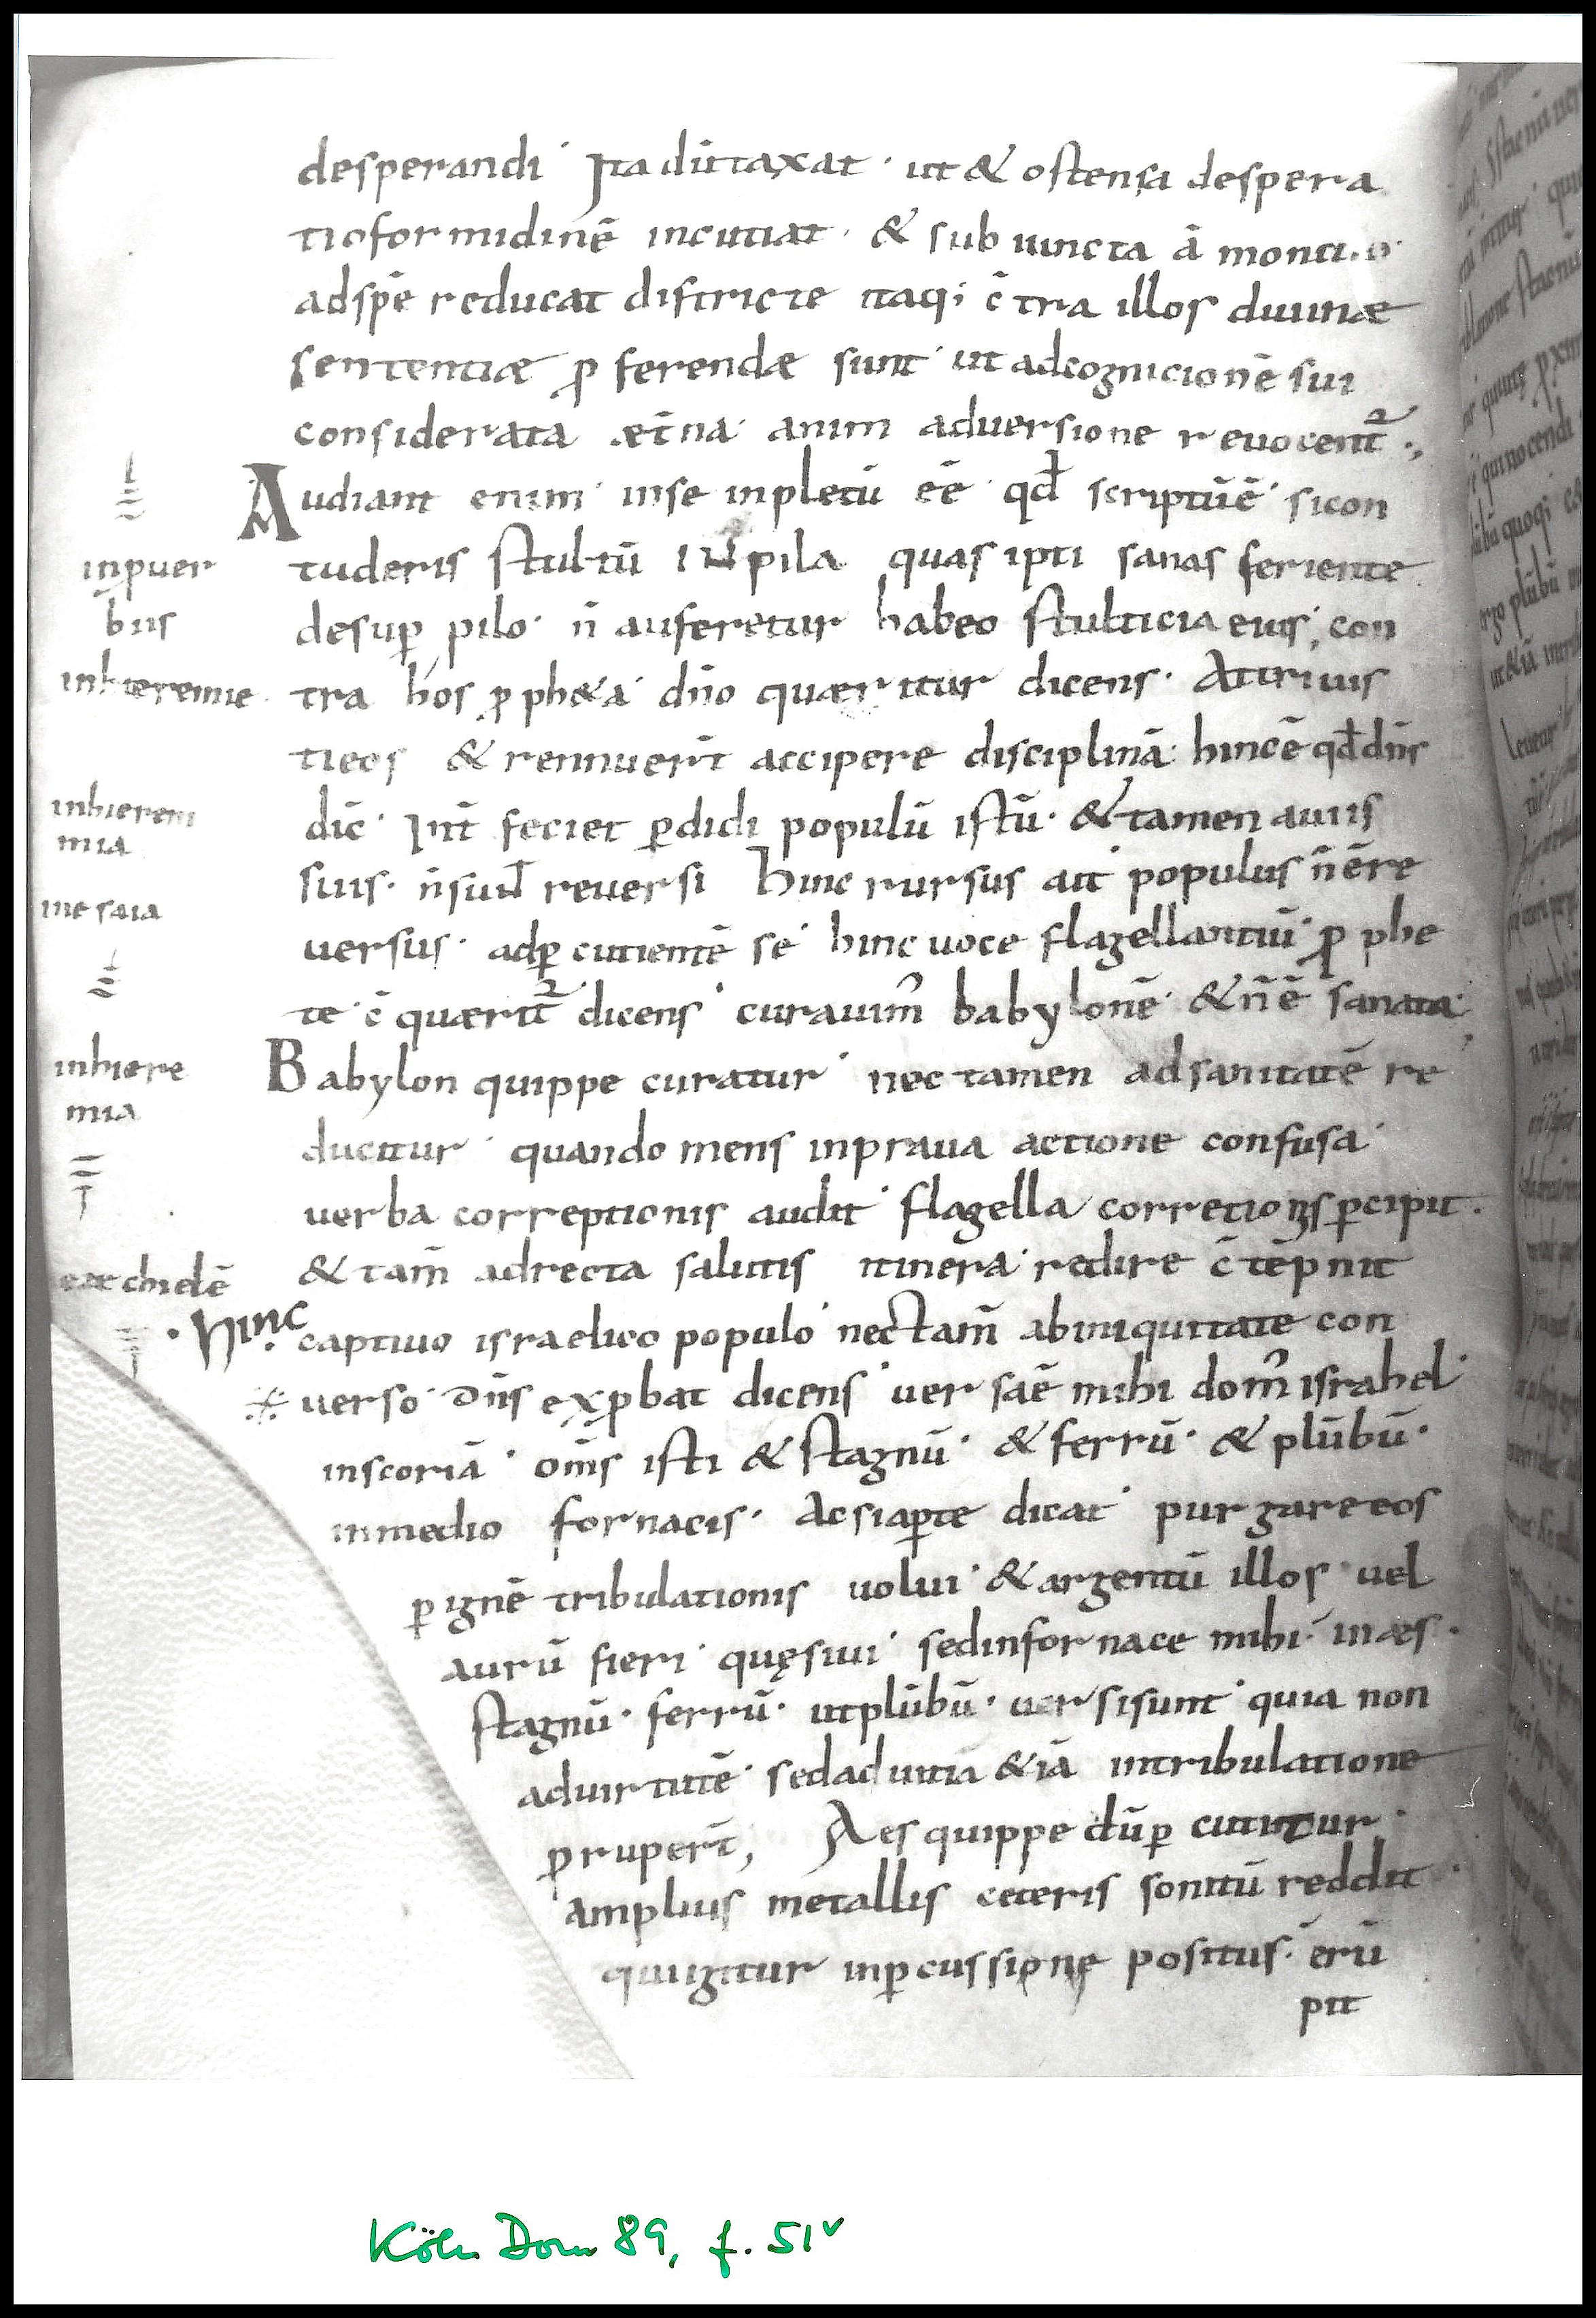 desperandi· Ita dūtaxat· ut & ostensa despera
tio formidinē incutiat· & subiuncta āmonti.o·
ad spē reducat districte itaq; c̄tra illos diuinæ
sententiæ ꝓferendæ sunt· ut ad cognicionē sui
considerata æt̄na· animaduersione reuocent᷑·,
Audiant enim· in se inpletū ēē· qđ scriptū ē· si con
inꝓuer
tuderis stultū IN pila quasi pti sanas feriente
biis
desuꝑ pilo· n̄ auferetur habeo stulticia eius; con
inhieremie·
tra hos ꝓph&a· dn̄o quæritur dicens· Attriuis
ti eos & rennuer̄t accipere disciplinā· hinc ē qđ dn̄s
inhierem
mia
dic̄· Int̄feciet ꝑdidi populū istū· & tamen a uiis
suis· n̄ sun̄t reuersi Hinc rursus ait· populus n̄ ē re
in esaia
uersus· ad ꝑcutientē se· hinc uoce flagellantiū· ꝓphe
te· c̄quærit᷑ dicens· curauim᷒ babylonē· & n̄ ē sanata;
inhiere
mia
Babylon quippe curatur· nec tamen ad sanitatē re
ducitur· quando mens in praua actione confusa·
uerba correptionis audit· flagella corretionis ꝑcipit·
& tam̄ ad recta salutis itinera· redire c̄tēpnit
chielē
· hinc· captiuo israelico populo· nec tam̄ ab iniquitate con
uerso· dn̄s exꝓbat dicens· uersa ē mihi dom᷒ israhel·
in scoriā· om̄s isti & stagnū· & ferrū· & plūbū·
in medio fornacis· Ac si aꝑte dicat· purgare eos
ꝑ ignē tribulationis uolui· & argentū illos· uel
aurū fieri· quęsiui· sed in fornace mihi· in æs·
stagnū· ferrū· ut plūbū· uersi sunt· quia non
ad uirtutē· sed ad uitia &iā in tribulatione
ꝓruper̄t, Aes quippe dū ꝑcutitur·
amplius metallis ceteris sonitū reddit·
qui igitur in ꝑcussione positus· erū
pit
Köln Dom 89, f. 51v